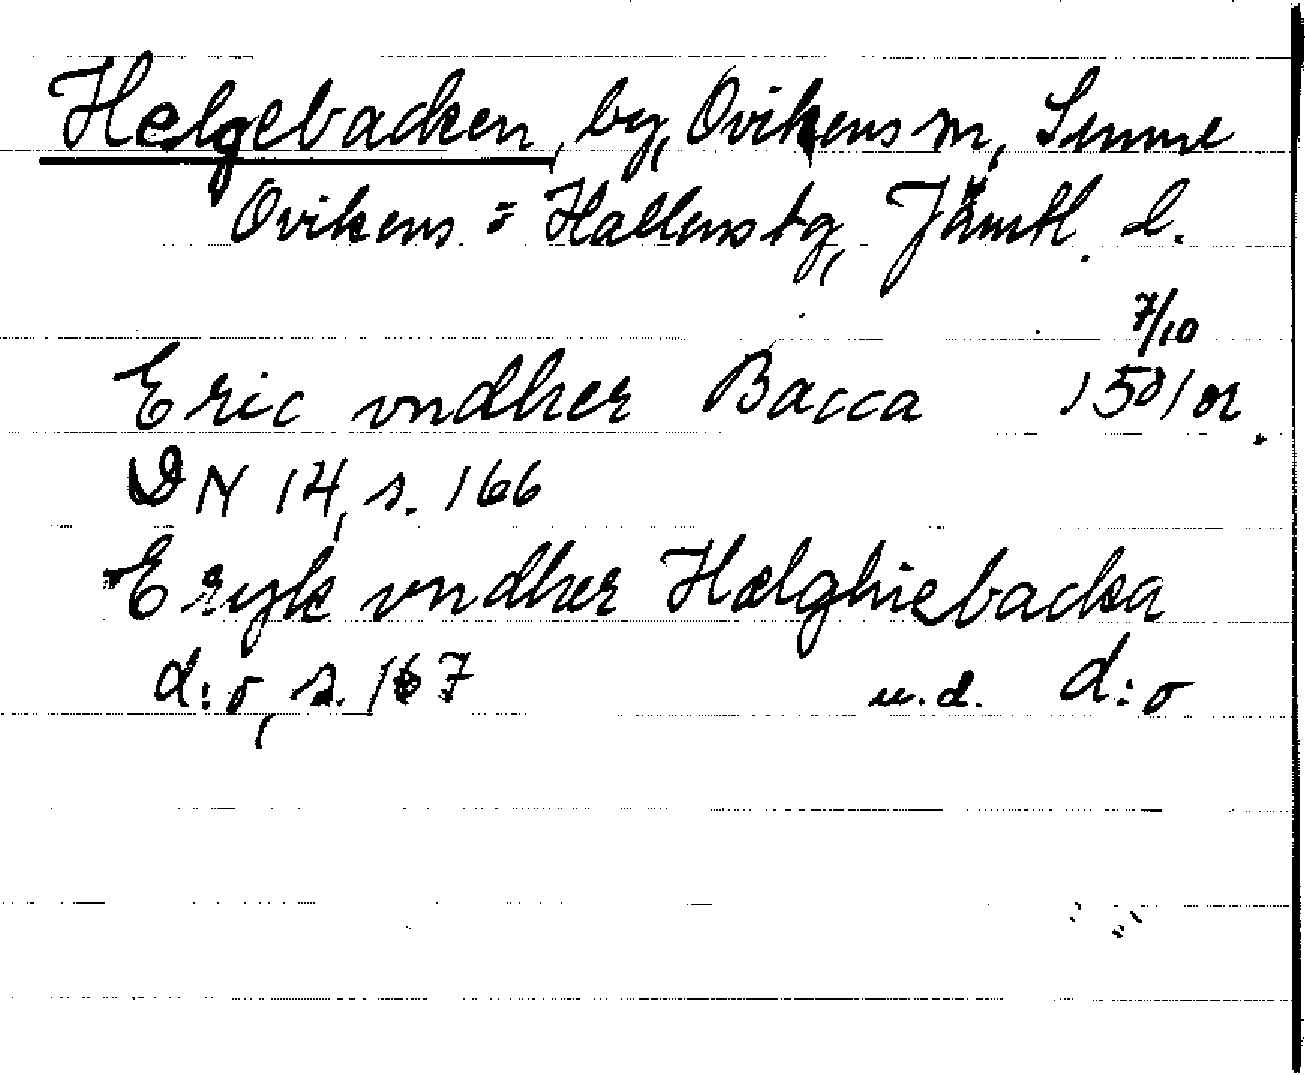 Helgebacken, by, Ovikens sn, Sunne
Ovikens o Hallens tg, Jämtl. l.
7/10
Eric vndher Bacca 1501 or.
DN 14, s. 166
Eryk vndher Hælghiebacka
d:o, s. 167 u.d. d:o